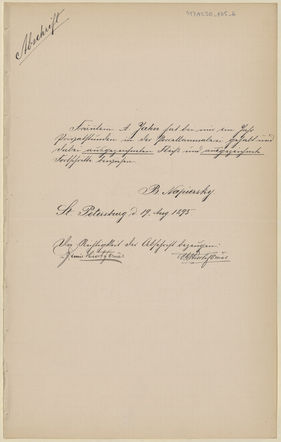 Abschrift
Fräulein A. Jahn hat bei mir ein Jahr
Privatstunden in der Porzellanmalerei gehabt und
dabei ausgezeichneten Fleiß und ausgezeichnete
Fortschritte bewiesen.
B. Napiersky
St. Petersburg, d 19. Aug 1895
Die Richtigkeit der Abschrift bezeugen: